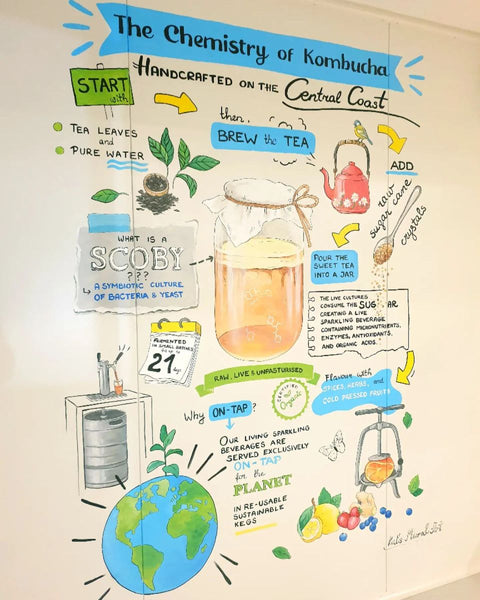 The Chemistry of Kombucha
HANDCRAFTED ON THE
Central Coast
START
with
TEA LEAVES
and
PURE WATER
then,
BREW the TEA
ADD
raw
sugar cane
crystals
POUR THE
SWEET TEA
INTO A JAR
WHAT IS A
SCOBY
???
A SYMBIOTIC CULTURE
OF BACTERIA & YEAST
THE LIVE CULTURES
CONSUME THE SUGAR
CREATING A LIVE
SPARKLING BEVERAGE
CONTAINING MICRONUTRIENTS,
ENZYMES, ANTIOXIDANTS,
AND ORGANIC ACIDS.
FERMENTED
IN SMALL BATCHES
21
days
RAW, LIVE & UNPASTURISED
CERTIFIED
Organic
Flavour with
SPICES, HERBS, and
COLD PRESSED FRUITS
Why ON-TAP?
OUR LIVING SPARKLING
BEVERAGES ARE
SERVED EXCLUSIVELY
ON-TAP
for the
PLANET
IN RE-USABLE
SUSTAINABLE
KEGS